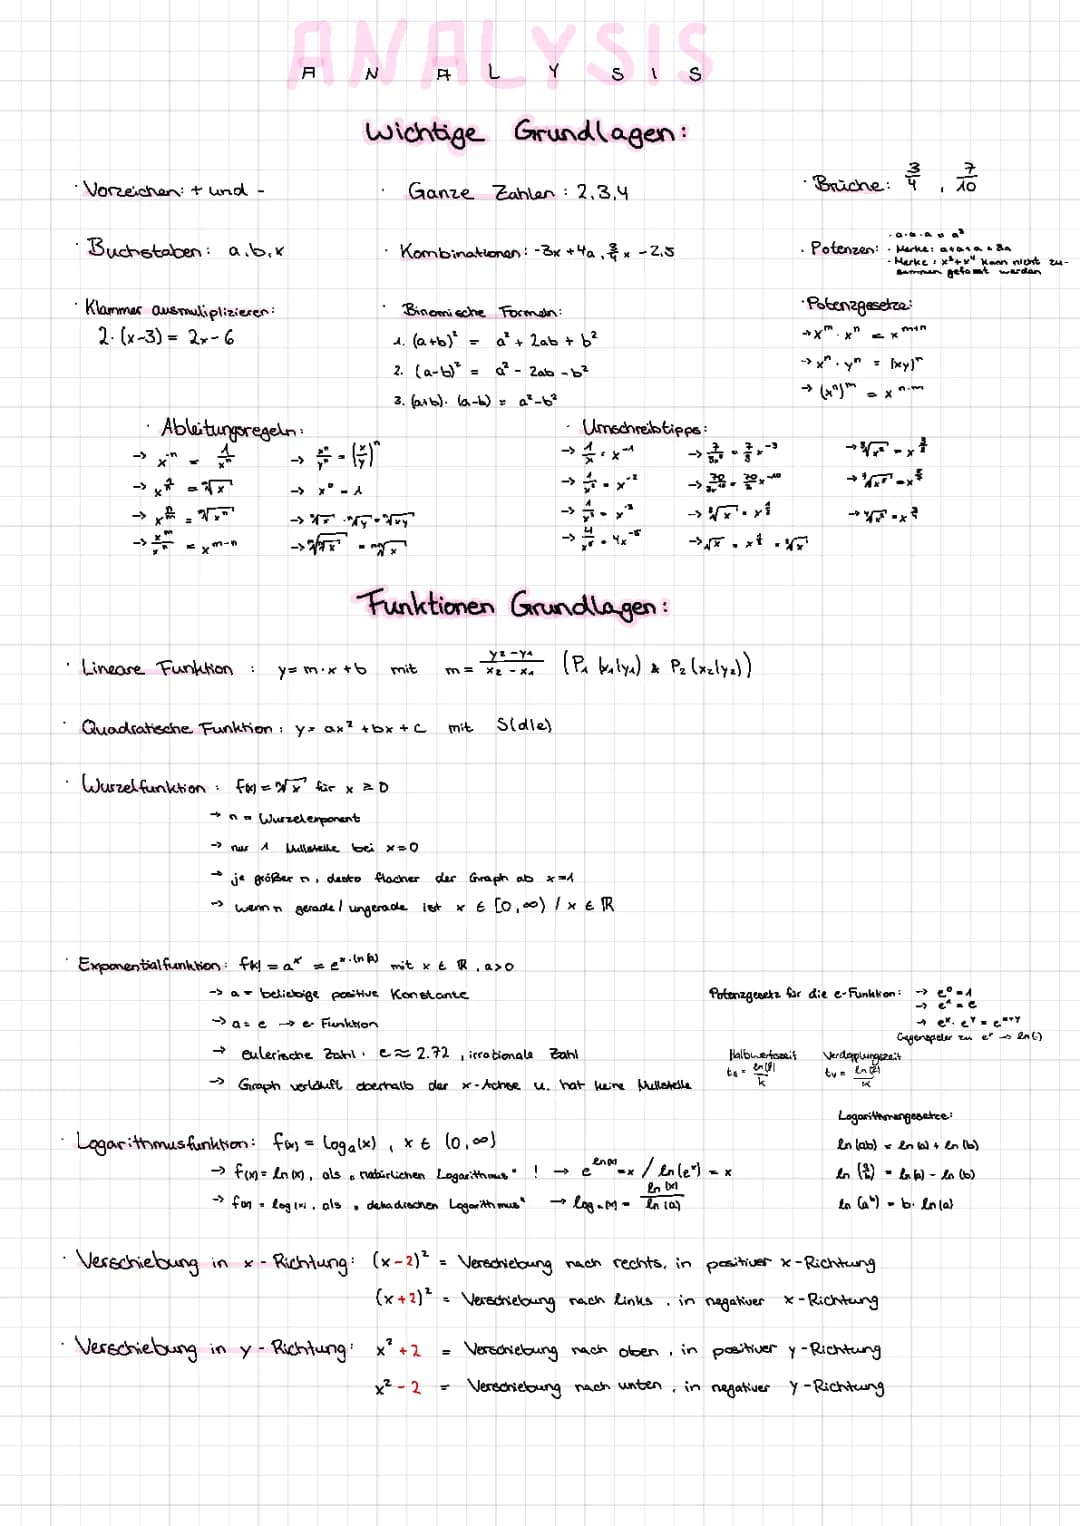 ANALYSIS
A N A L Y S I S
Wichtige Grundlagen:
· Vorzeichen: + und -
· Ganze Zahlen : 2,3,4
· Brüche: 3/4 , 7/10
· Buchstaben: a,b,x
· Kombinationen: -3x +4a , 3/4 x -2,5
· Potenzen: · a·a·a = a³
· Merke: a+a+a = 3a
· Merke: x³+x⁴ kann nicht zu-
sammen gefasst werden
· Klammer ausmuliplizieren:
2·(x-3) = 2x-6
· Binomische Formeln:
1. (a+b)² = a² + 2ab + b²
2. (a-b)² = a² - 2ab - b²
3. (a+b)·(a-b) = a²-b²
· Potenzgesetze:
→ x^m · x^n = x^m+n
→ x^n · y^n = (xy)^n
→ (x^n)^m = x^n·m
· Ableitungsregeln:
→ x^-n = 1/x^n
→ x^n/y^n = (x/y)^n
→ x^1/n = ⁿ√x
→ x⁰ = 1
→ x^m/n = ⁿ√x^m
→ ⁿ√x · ⁿ√y = ⁿ√xy
→ x^m/x^n = x^m-n
· Umschreibtipps:
→ 1/x = x^-1
→ 1/x² = x^-2
→ 1/x³ = x^-3
→ 4/x⁵ = 4x^-5
Funktionen Grundlagen:
· Lineare Funktion : y= m·x +b mit m = y₂-y₁/x₂-x₁ (P₁ (x₁|y₁) & P₂ (x₂|y₂))
· Quadratische Funktion : y= ax² +bx + c mit S(d|e)
· Wurzelfunktion : f(x) = ⁿ√x für x ≥ 0
→ n = Wurzelexponent
→ nur 1 Nullstelle bei x=0
→ je größer n, desto flacher der Graph ab x=1
→ wenn n gerade / ungerade ist x ∈ [0,∞) / x ∈ ℝ
· Exponentialfunktion: f(x) = a^x = e^x·ln(a) mit x ∈ ℝ, a>0
→ a = beliebige positive Konstante
→ a = e → e- Funktion
→ eulerische Zahl · e ≈ 2.72 , irrationale Zahl
→ Graph verläuft oberhalb der x-Achse u. hat keine Nullstelle
Potenzgesetz für die e-Funktion: → e⁰ = 1
→ e¹ = e
→ e^x · e^y = e^x+y
Gegenspieler zu e^x → ln()
Halbwertszeit
Verdopplungszeit
tv = ln(2)/k
· Logarithmusfunktion: f(x) = logₐ(x) , x ∈ (0,∞)
→ f(x) = ln(x), als „natürlichen Logarithmus" ! → e^ln(x) = x / ln(e^x) = x
→ f(x) = log(x), als „dekadischen Logarithmus" → logₐ(x) = ln(x)/ln(a)
Logarithmengesetze:
ln(ab) = ln(a) + ln(b)
ln(a/b) = ln(a) - ln(b)
ln(a^b) = b· ln(a)
· Verschiebung in x - Richtung: (x-2)² = Verschiebung nach rechts, in positiver x-Richtung
(x+2)² = Verschiebung nach links , in negativer x-Richtung
· Verschiebung in y - Richtung: x² +2 = Verschiebung nach oben , in positiver y-Richtung
x² - 2 = Verschiebung nach unten , in negativer y-Richtung